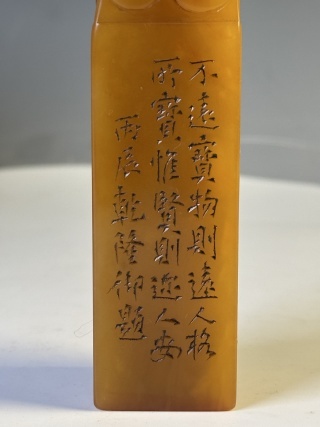 不遠寶物則遠人格
所寶惟賢則邇人安
丙辰乾隆御題